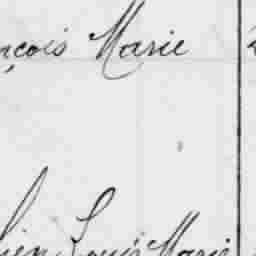 nçois Marie
lien Louis Marie